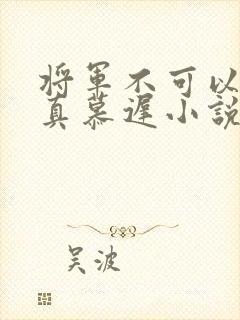 将軍不可以
真慕遲小説
吴波